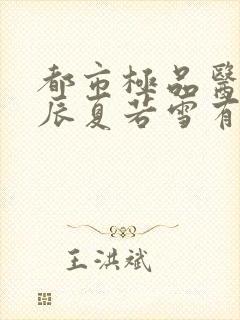 都市極品醫
辰夏若雪有
王洪斌